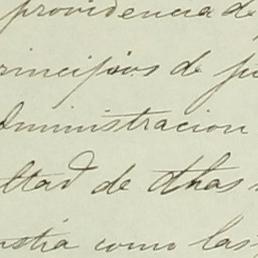 providencia de
rincipios de ju
dministracion
ultad de dhas
ustia como las